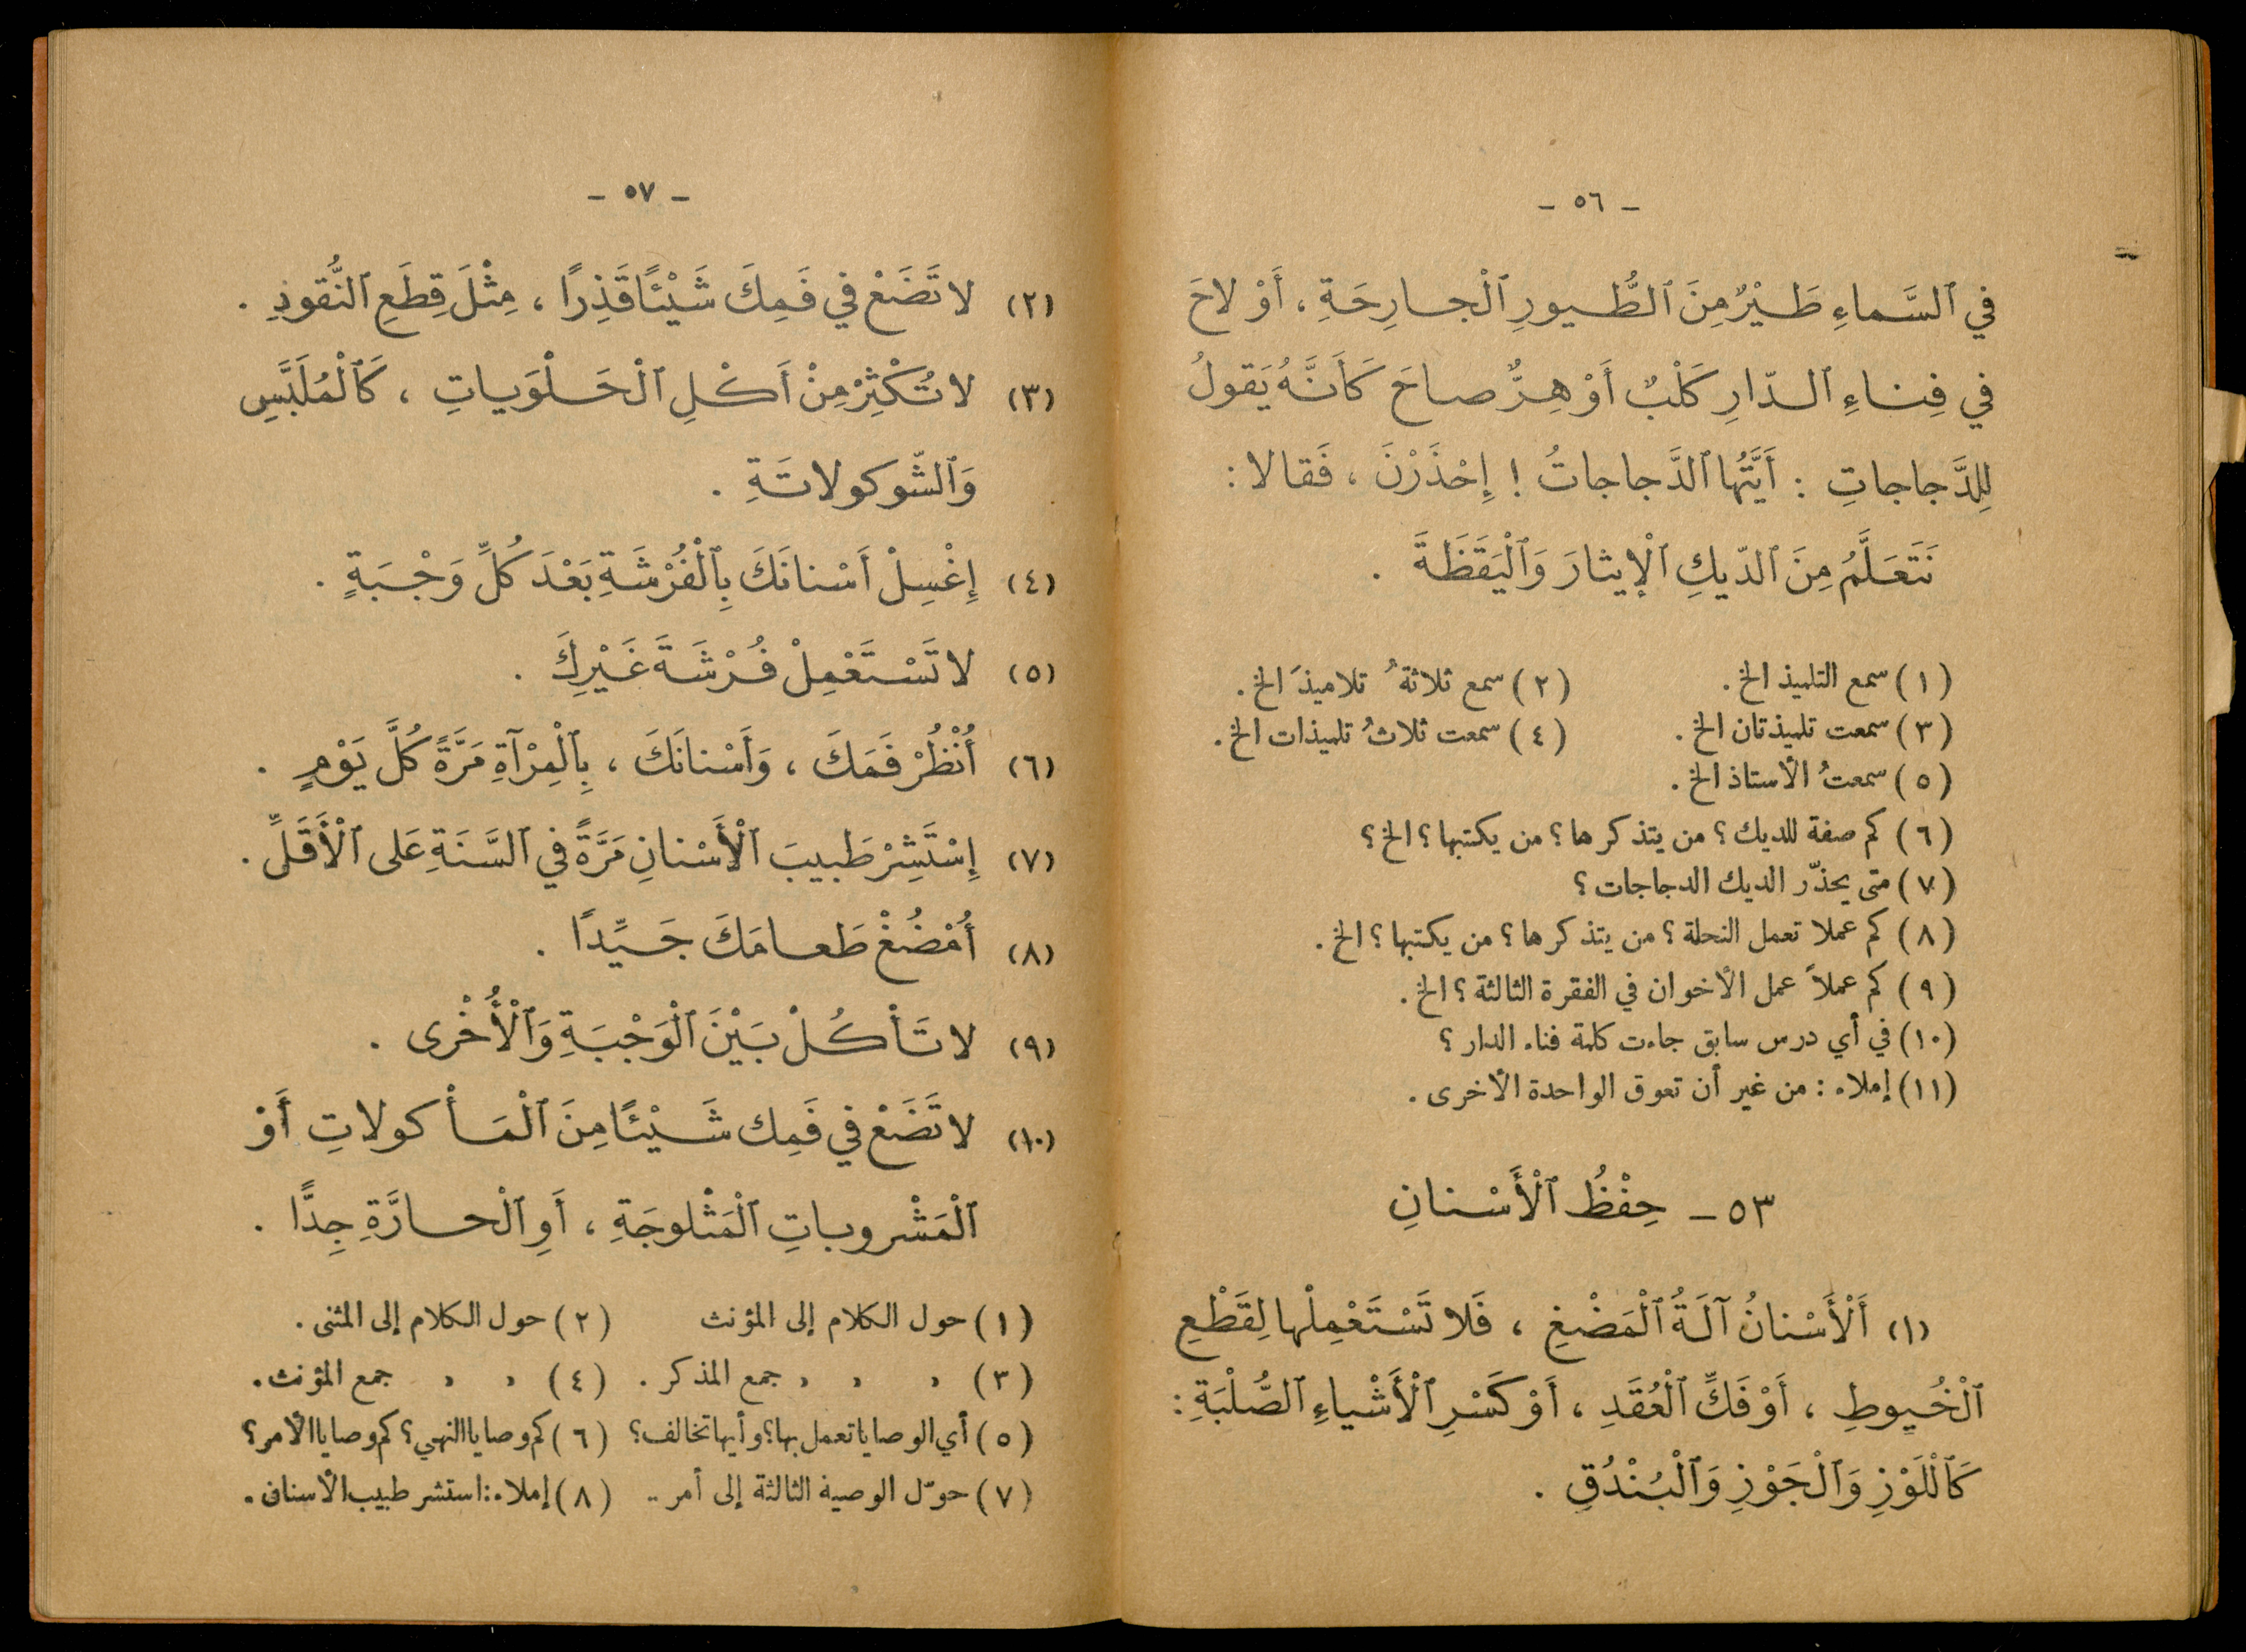 - ٥٦ -
في ٱلسَّماءِ طَيْرٌ مِنَ ٱلطُّيورِ ٱلْجارِحَةِ ، أَوْ لاحَ
في فِناءِ ٱلدّارِ كَلْبٌ أَوْ هِرٌّ صاحَ كَأَنَّهُ يَقولُ
لِلدَّجاجاتِ : أَيَّتُها ٱلدَّجاجاتُ ! إِحْذَرْنَ ، فَقالا :
نَتَعَلَّمُ مِنَ ٱلدّيكِ ٱلْإيثارَ وَٱلْيَقَظَةَ .
(١) سمع التلميذ الخ . (٢) سمع ثلاثةُ تلاميذَ الخ .
(٣) سمعت تلميذتان الخ . (٤) سمعت ثلاثُ تلميذات الخ .
(٥) سمعتُ الأستاذ الخ .
(٦) كم صفة للديك ؟ من يتذكرها ؟ من يكتبها ؟ الخ ؟
(٧) متى يحذّر الديك الدجاجات ؟
(٨) كم عملا تعمل النحلة ؟ من يتذكرها ؟ من يكتبها ؟ الخ .
(٩) كم عملاً عمل الأخوان في الفقرة الثالثة ؟ الخ .
(١٠) في أي درس سابق جاءت كلمة فناء الدار ؟
(١١) إملاء : من غير أن تعوق الواحدة الأخرى .
٥٣ - حِفْظُ ٱلْأَسْنانِ
(١) أَلْأَسْنانُ آلَةُ ٱلْمَضْغِ ، فَلا تَسْتَعْمِلْها لِقَطْعِ
ٱلْخُيوطِ ، أَوْ فَكِّ ٱلْعُقَدِ ، أَوْ كَسْرِ ٱلْأَشْياءِ ٱلصُّلْبَةِ :
كَٱللَّوْزِ وَٱلْجَوْزِ وَٱلْبُنْدُقِ .
- ٥٧ -
(٢) لا تَضَعْ في فَمِكَ شَيْئًا قَذِرًا ، مِثْلَ قِطَعِ ٱلنُّقودِ .
(٣) لا تُكْثِرْ مِنْ أَكْلِ ٱلْحَلْوَياتِ ، كَٱلْمُلَبَّسِ
وَٱلشّوكولاتَةِ .
(٤) إِغْسِلْ أَسْنانَكَ بِٱلْفُرْشَةِ بَعْدَ كُلِّ وَجْبَةٍ .
(٥) لا تَسْتَعْمِلْ فُرْشَةَ غَيْرِكَ .
(٦) أُنْظُرْ فَمَكَ ، وَأَسْنانَكَ ، بِٱلْمِرْآةِ مَرَّةً كُلَّ يَوْمٍ .
(٧) إِسْتَشِرْ طَبيبَ ٱلْأَسْنانِ مَرَّةً في ٱلسَّنَةِ عَلى ٱلْأَقَلِّ .
(٨) أُمْضُغْ طَعامَكَ جَيِّدًا .
(٩) لا تَأْكُلْ بَيْنَ ٱلْوَجْبَةِ وَٱلْأُخْرى .
(١٠) لا تَضَعْ في فَمِك شَيْئًا مِنَ ٱلْمَأْكولاتِ أَوْ
ٱلْمَشْروباتِ ٱلْمَثْلوجَةِ ، أَوِ ٱلْحارَّةِ جِدًّا .
(١) حول الكلام إلى المؤنث (٢) حول الكلام إلى المثنى .
(٣) » » » جمع المذكر . (٤) » » جمع المؤنث .
(٥) أي الوصايا تعمل بها؟ وأيها تخالف؟ (٦) كم وصايا النهي؟ كم وصايا الأمر؟
(٧) حوّل الوصية الثالثة إلى أمر .. (٨) إملاء : استشر طبيب الأسنان .